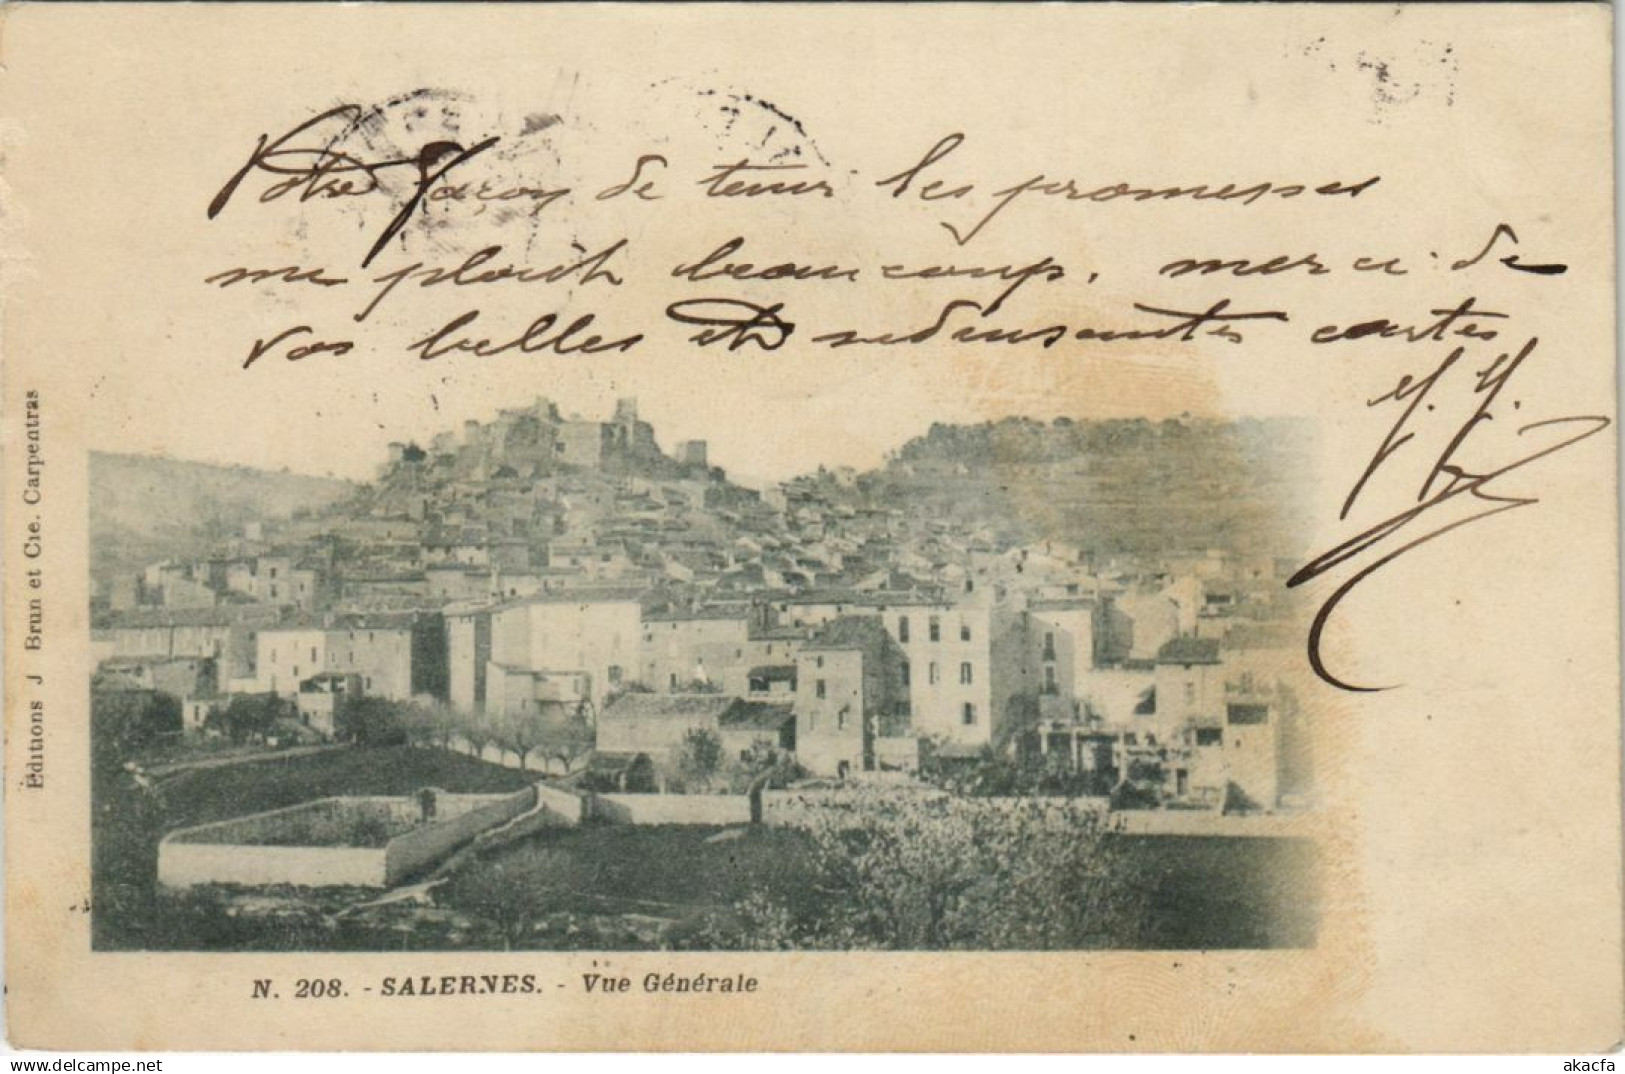 Votre façon de tenir les promesses
me plaît beaucoup. merci de
vos belles et séduisantes cartes
Editions J Brun et Cie. Carpentras
N. 208. - SALERNES. - Vue Générale
delcampe.net
akacfa